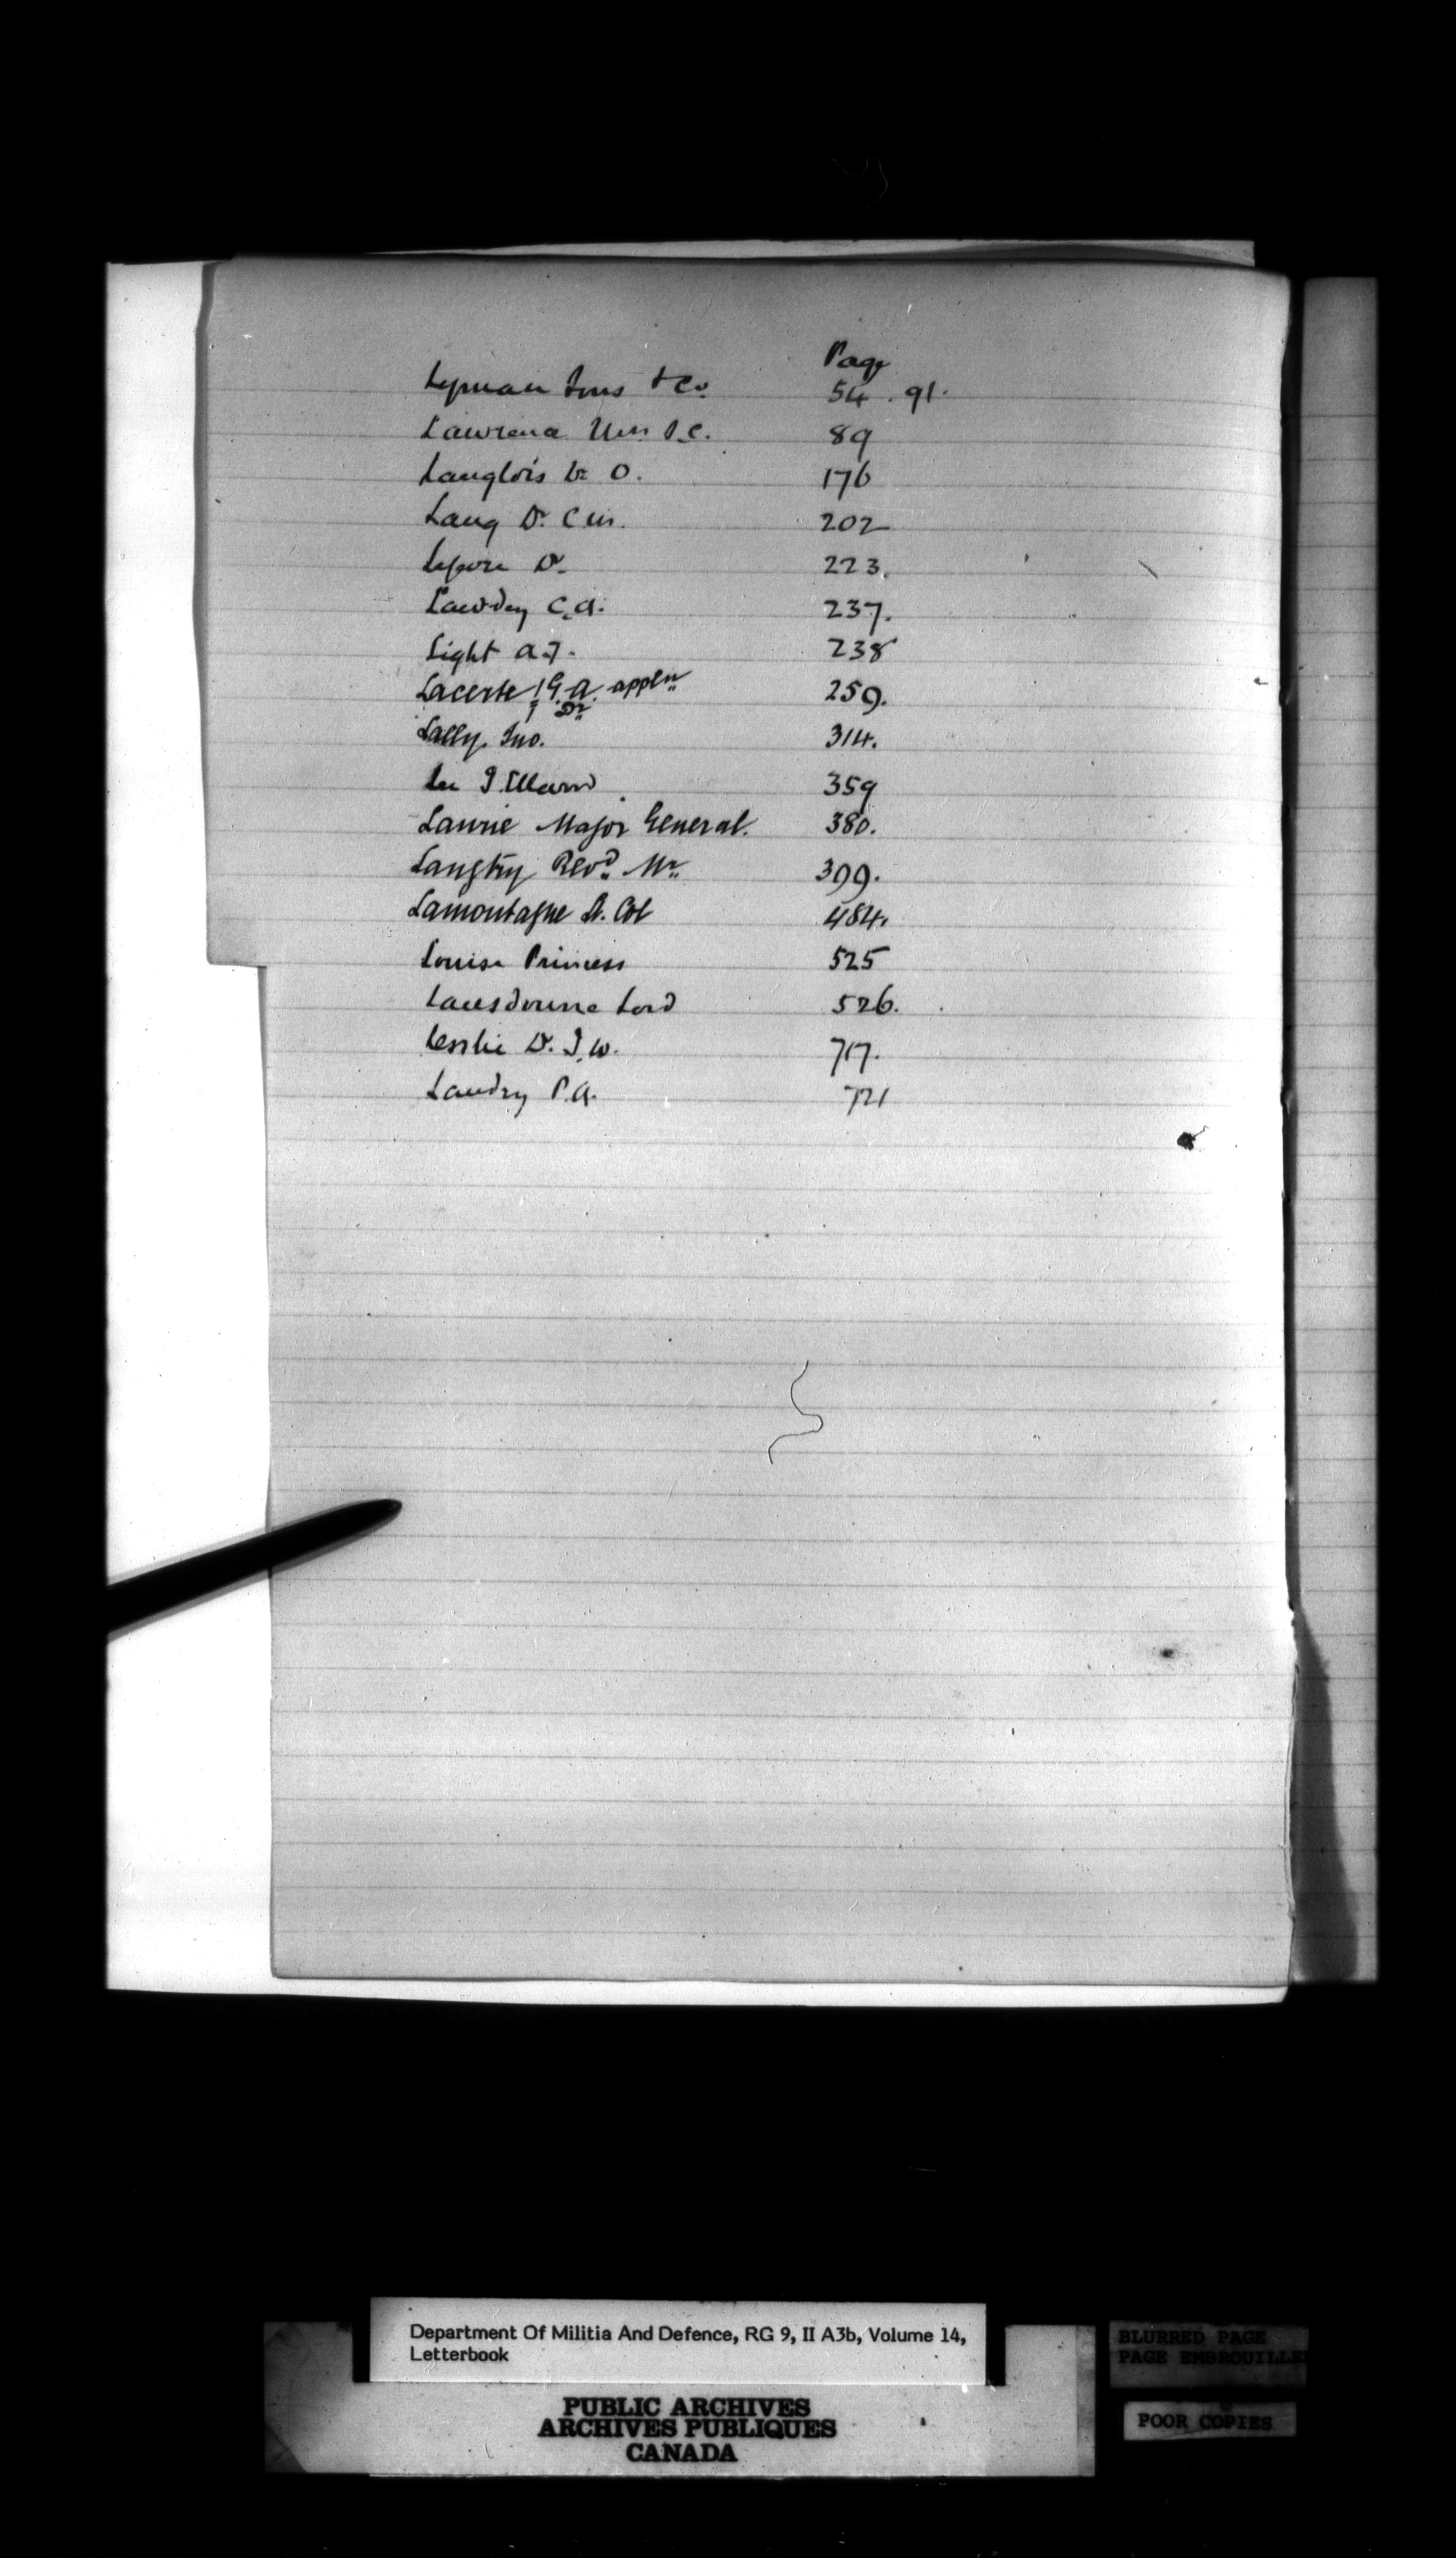 Page
Lyman Sons & Co. 54 . 91.
Lawrence Wm P.C. 89
Langlois Dr O. 176
Lang Dr. C M. 202
Dr. 223.
Lawdry C.A. 237.
Light A.J. 238
Lacerte G.A. appln 259.
Dr
Lally Jno. 314.
359
Laurie Major General. 380.
Langtry Revd. Mr. 399.
Lamontagne Lt. Col 484.
Louise Princess 525
Lansdowne Lord 526.
Lesslie Dr. J.W. 717.
Landry P.A. 721
Department Of Militia And Defence, RG 9, II A3b, Volume 14,
Letterbook
PUBLIC ARCHIVES
ARCHIVES PUBLIQUES
CANADA
BLURRED PAGE
PAGE EMBROUILLE
POOR COPIES